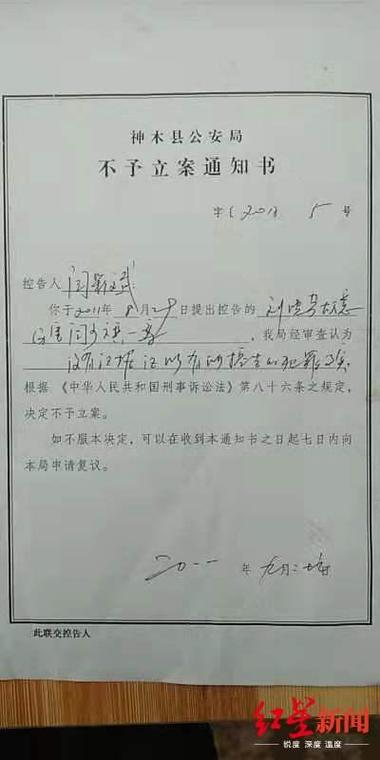 神木县公安局
不予立案通知书
字(2011) 5号
控告人
你于2011年8月29日提出控告的刘
一案，我局经审查认为
没有证据证明有
根据《中华人民共和国刑事诉讼法》第八十六条之规定，
决定不予立案。
如不服本决定，可以在收到本通知书之日起七日内向
本局申请复议。
二〇一一年九月二
此联交控告人
红星新闻
锐度 深度 温度